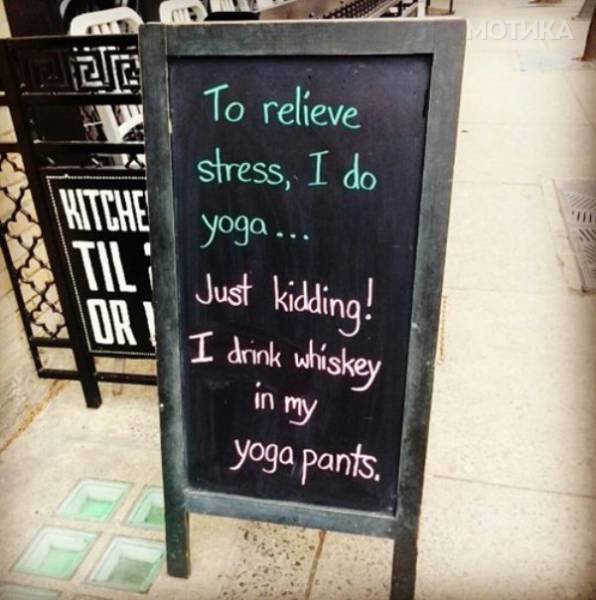 МОТИКА
To relieve
stress, I do
yoga...
Just kidding!
I drink whiskey
in my
yoga pants.
KITCHE
TIL
OR